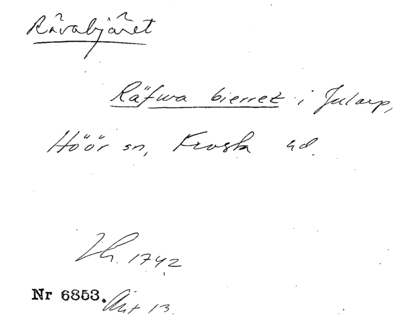 Rävabjäret
Räfwa bierret i Jularp,
Höör sn, Frosta hd.
Lh. 1742
Nr 6853. Akt 13.